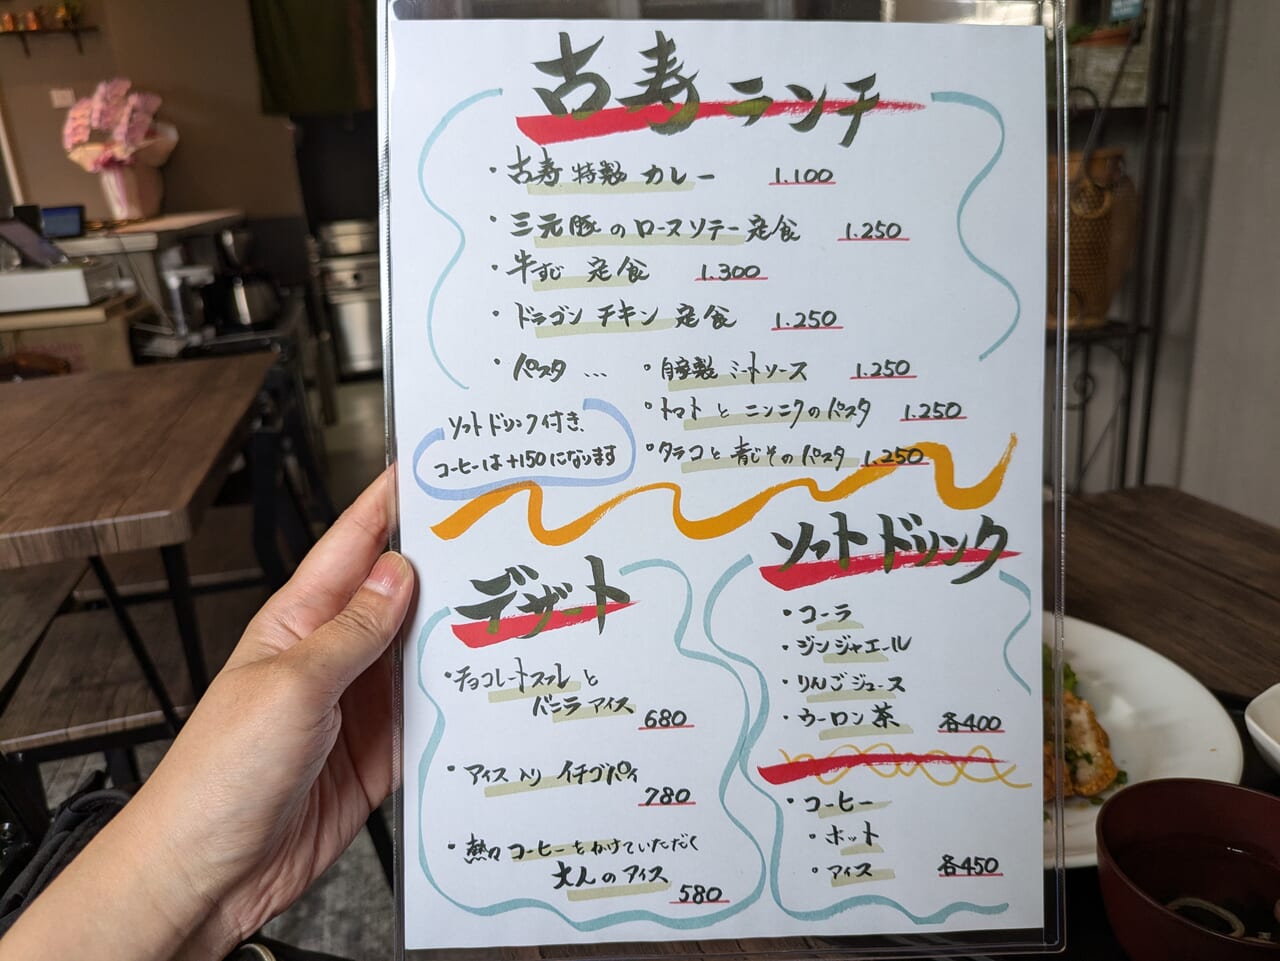 古寿 ランチ
・古寿 特製 カレー 1.100
・三元豚のロースソテー定食 1.250
・牛すじ 定食 1.300
・ドラゴンチキン 定食 1.250
・パスタ …
・自家製 ミートソース 1.250
・トマト と ニンニクのパスタ 1.250
・タラコと青じそのパスタ 1.250
ソフトドリンク付き、
コーヒーは+150になります
デザート
・チョコレートスフレ と
バニラアイス 680
・アイス入り イチゴパイ
780
・熱々コーヒーをかけていただく
大人のアイス 580
ソフトドリンク
・コーラ
・ジンジャエール
・りんごジュース
・ウーロン茶 各400
・コーヒー
・ホット
・アイス 各450